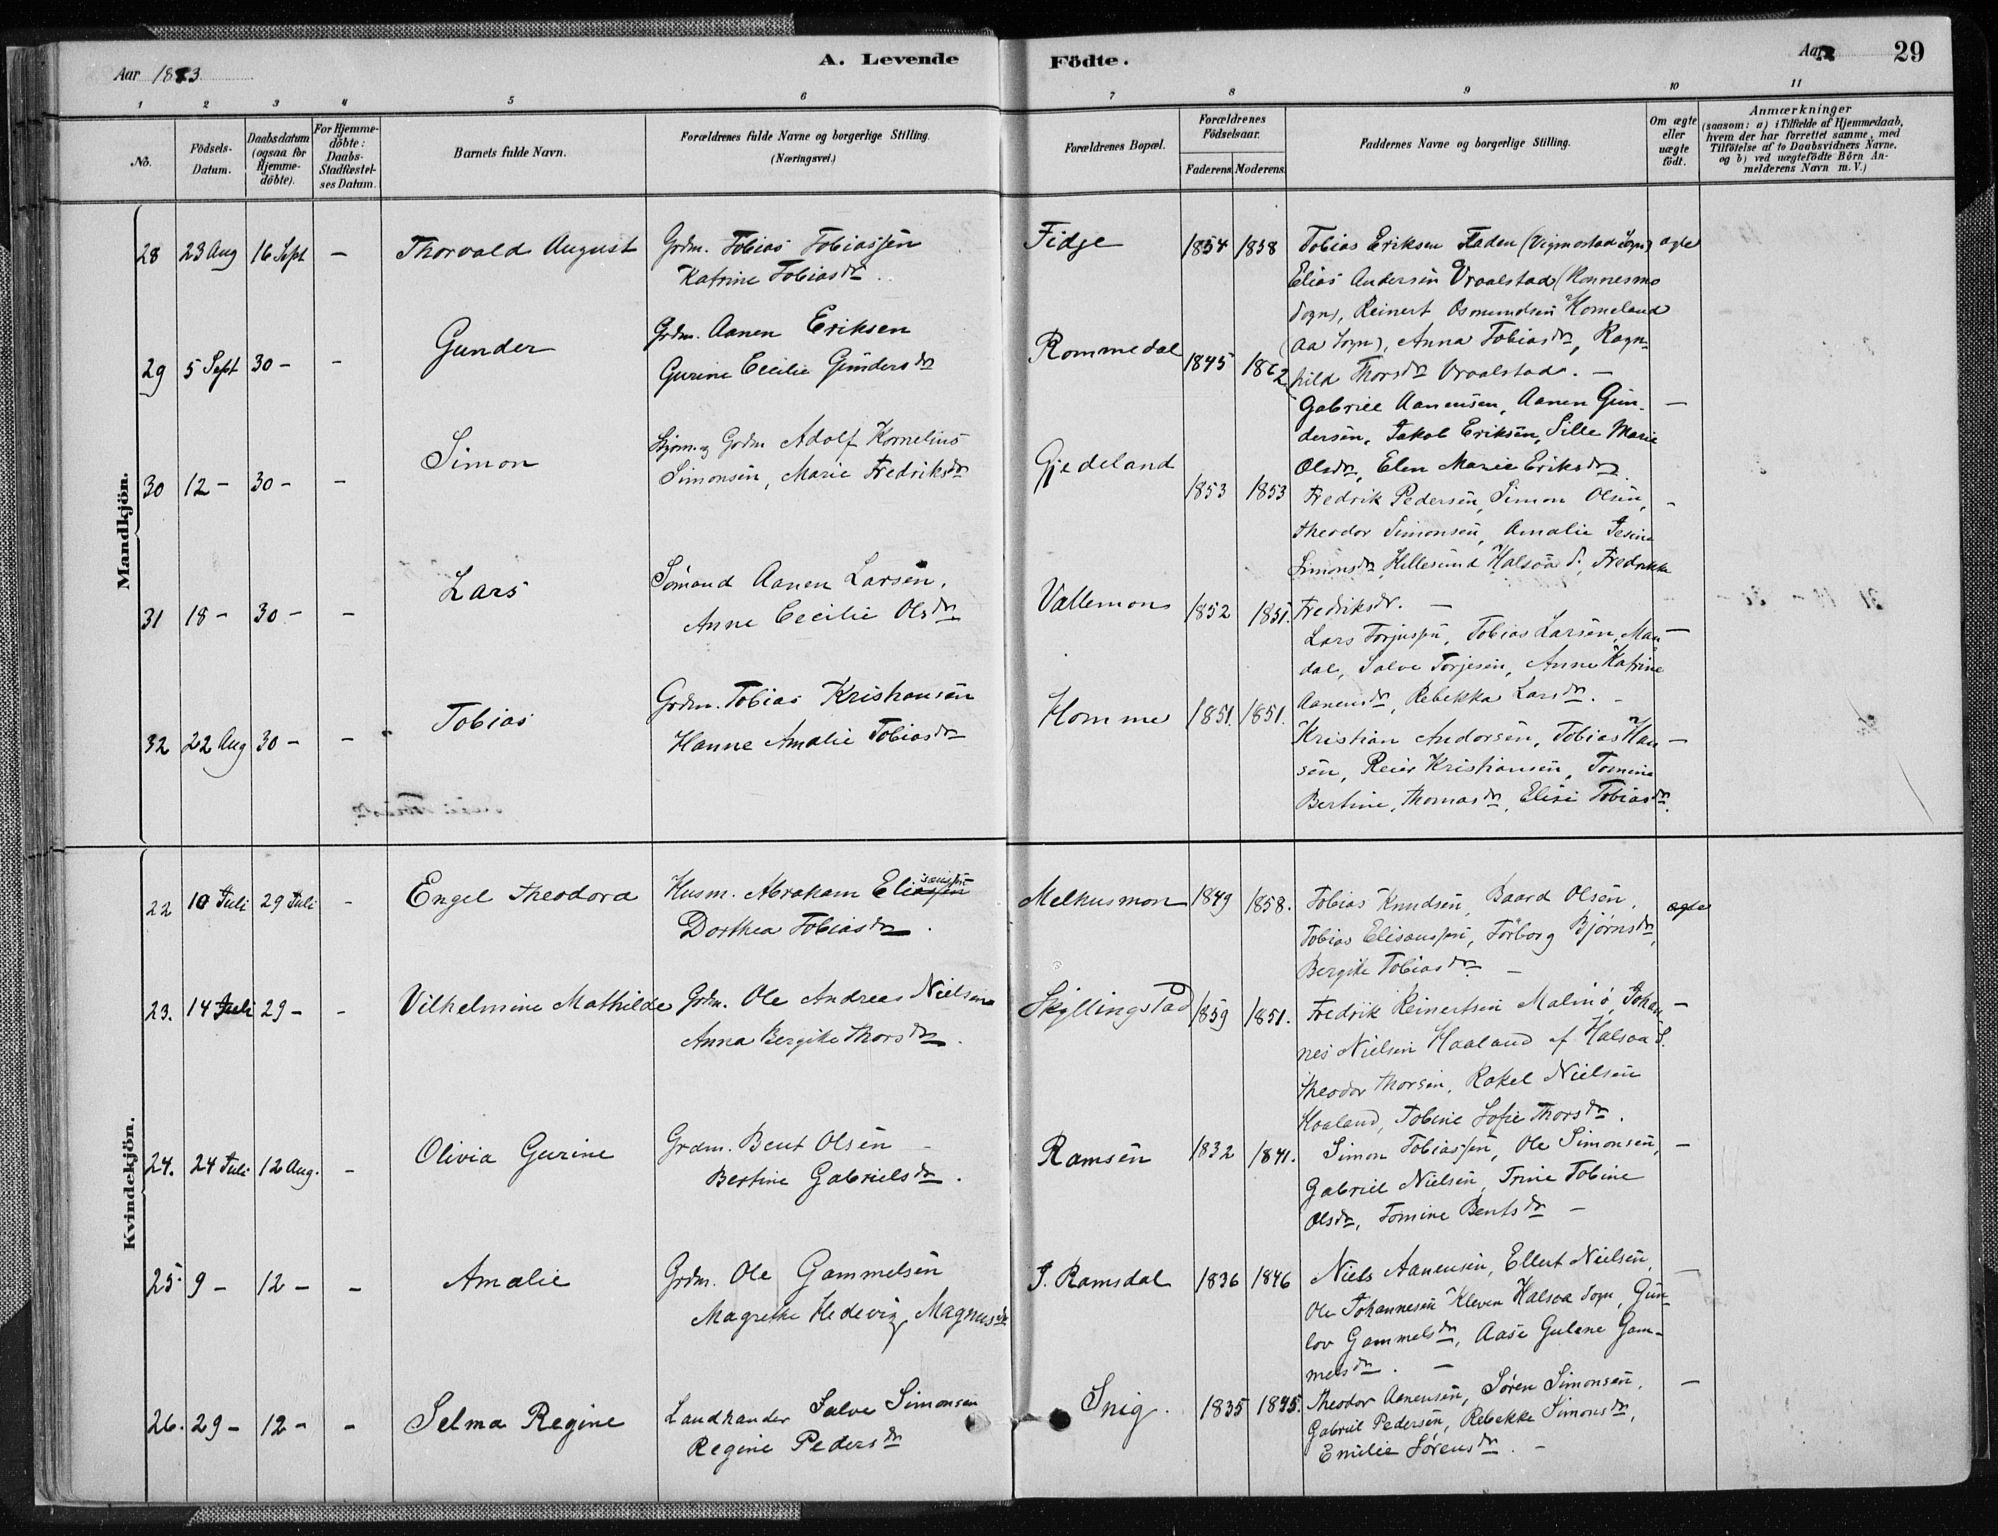 Aar 1883
A. Levende Födte.
Aar
29
1 2 3 4 5 6 7 8 9 10 11
No.
Födsels-Datum.
Daabsdatum (ogsaa for Hjemme-döbte).
For Hjemme-döbte: Daabs-Stadfæstel-ses Datum.
Barnets fulde Navn.
Forældrenes fulde Navne og borgerlige Stilling. (Næringsvei.)
Forældrenes Bopæl.
Forældrenes Födselsaar.
Faderens. Moderens.
Faddernes Navne og borgerlige Stilling.
Om ægte eller uægte födt.
Anmærkninger
(saasom: a) i Tilfælde af Hjemmedaab, hvem der har forrettet samme, med Tilföielse af to Daabsvidners Navne. og b) ved uægtefödte Börn An-melderens Navn m.V.)
Mandkjön.
28 23 Aug 16 Sept – Thorvald August
Grdm. Tobias Tobiassen
Katrine Tobiasdr.
Fidje 1854 1858
Tobias Eriksen Faden (Vigmostad Sogn) ægte
Elias Andersen Vraalstad (Hennesmo
Sogn), Reinert Osmundsen Homeland
(Aa Sogn), Anna Tobiasdr, Ragn-
hild Thorsdr Vraalstad. –
29 5 Sept 30 – – Gunder
Grdm. Aanen Eriksen
Gurine Cecilie Gundersdr
Rommedal 1845 1862
Gabriel Aanensen, Aanen Gun- –
dersen, Jakob Eriksen, Sille Marie
Olsdr, Elen Marie Eriksdr
30 12 – 30 – – Simon
Grdm Adolf Kornelius
Simonsen, Marie Fredriksdr
Gjedeland 1853 1853
Fredrik Pedersen, Simon Olsen, –
Theodor Simonsen, Amalie Jesine
Simonsdr Hillesund Halsaa S., Fredrikke
Fredriksdr. –
31 18 – 30 – – Lars
Sømand Aanen Larsen.
Anne Cecilie Olsdr
Vallemon 1852 1851.
Lars Torjussen, Tobias Larsen, Man- –
dal, Salve Torjesen, Anne Katrine
Aanensdr, Rebekka Larsdr. –
32 22 Aug 30 – – Tobias
Grdm. Tobias Kristiansen
Hanne Amalie Tobiasdr
Homme 1851. 1851.
Kristian Andersen, Tobias Han- –
sen, Reier Kristiansen, Tomine
Bertine, Thomasdr, Elise Tobiasdr.
Kvindekjön.
22 10 Juli 29 Juli – Engel Theodora
Husm. Abraham Eliassen
Dorthea Tobiasdr.
Melhusmon 1849 1858.
Tobias Knudsen, Baard Olsen, ægte
Tobias Elisaussen, Torborg Bjørnsdr,
Bergite Tobiasdr. –
23. 14 Juli 29 – – Vilhelmine Mathilde
Grdm. Ole Andreas Nielsen
Anna Bergite Thorsdr.
Skyllingstad 1859 1851.
Fredrik Reinertsen Malmø, Johan- –
nes Nielsen Haaland af Halsaa S.
Theodor Thorsen, Rakel Nielsen
Haaland, Tobine Sofie Thorsdr.
24. 24 Juli 12 Aug. – Olivia Gurine
Grdm. Bent Olsen –
Bertine Gabrielsdr.
Ramsen 1832 1841.
Simon Tobiassen, Ole Simonsen, –
Gabriel Nielsen, Trine Tobine
Olsdr, Tomine Bentsdr –
25. 9 – 12 – – Amalie
Grdm. Ole Gammelsen
Magrethe Hedevig Magnusdr
I. Ramsdal 1836 1846
Niels Aanensen, Ellert Nielsen, –
Ole Johannesen Kleven Halsaa Sogn, Gun-
lov Gammelsdr, Aase Gulene Gam-
melsdr. –
26. 29 – 12 – – Selma Regine
Landhandler Salve Simonsen
Regine Pedersdr
Snig. 1835 1845.
Theodor Aanensen, Søren Simonsen, –
Gabriel Pedersen, Rebekke Simonsdr,
Emilie Sørensdr. –